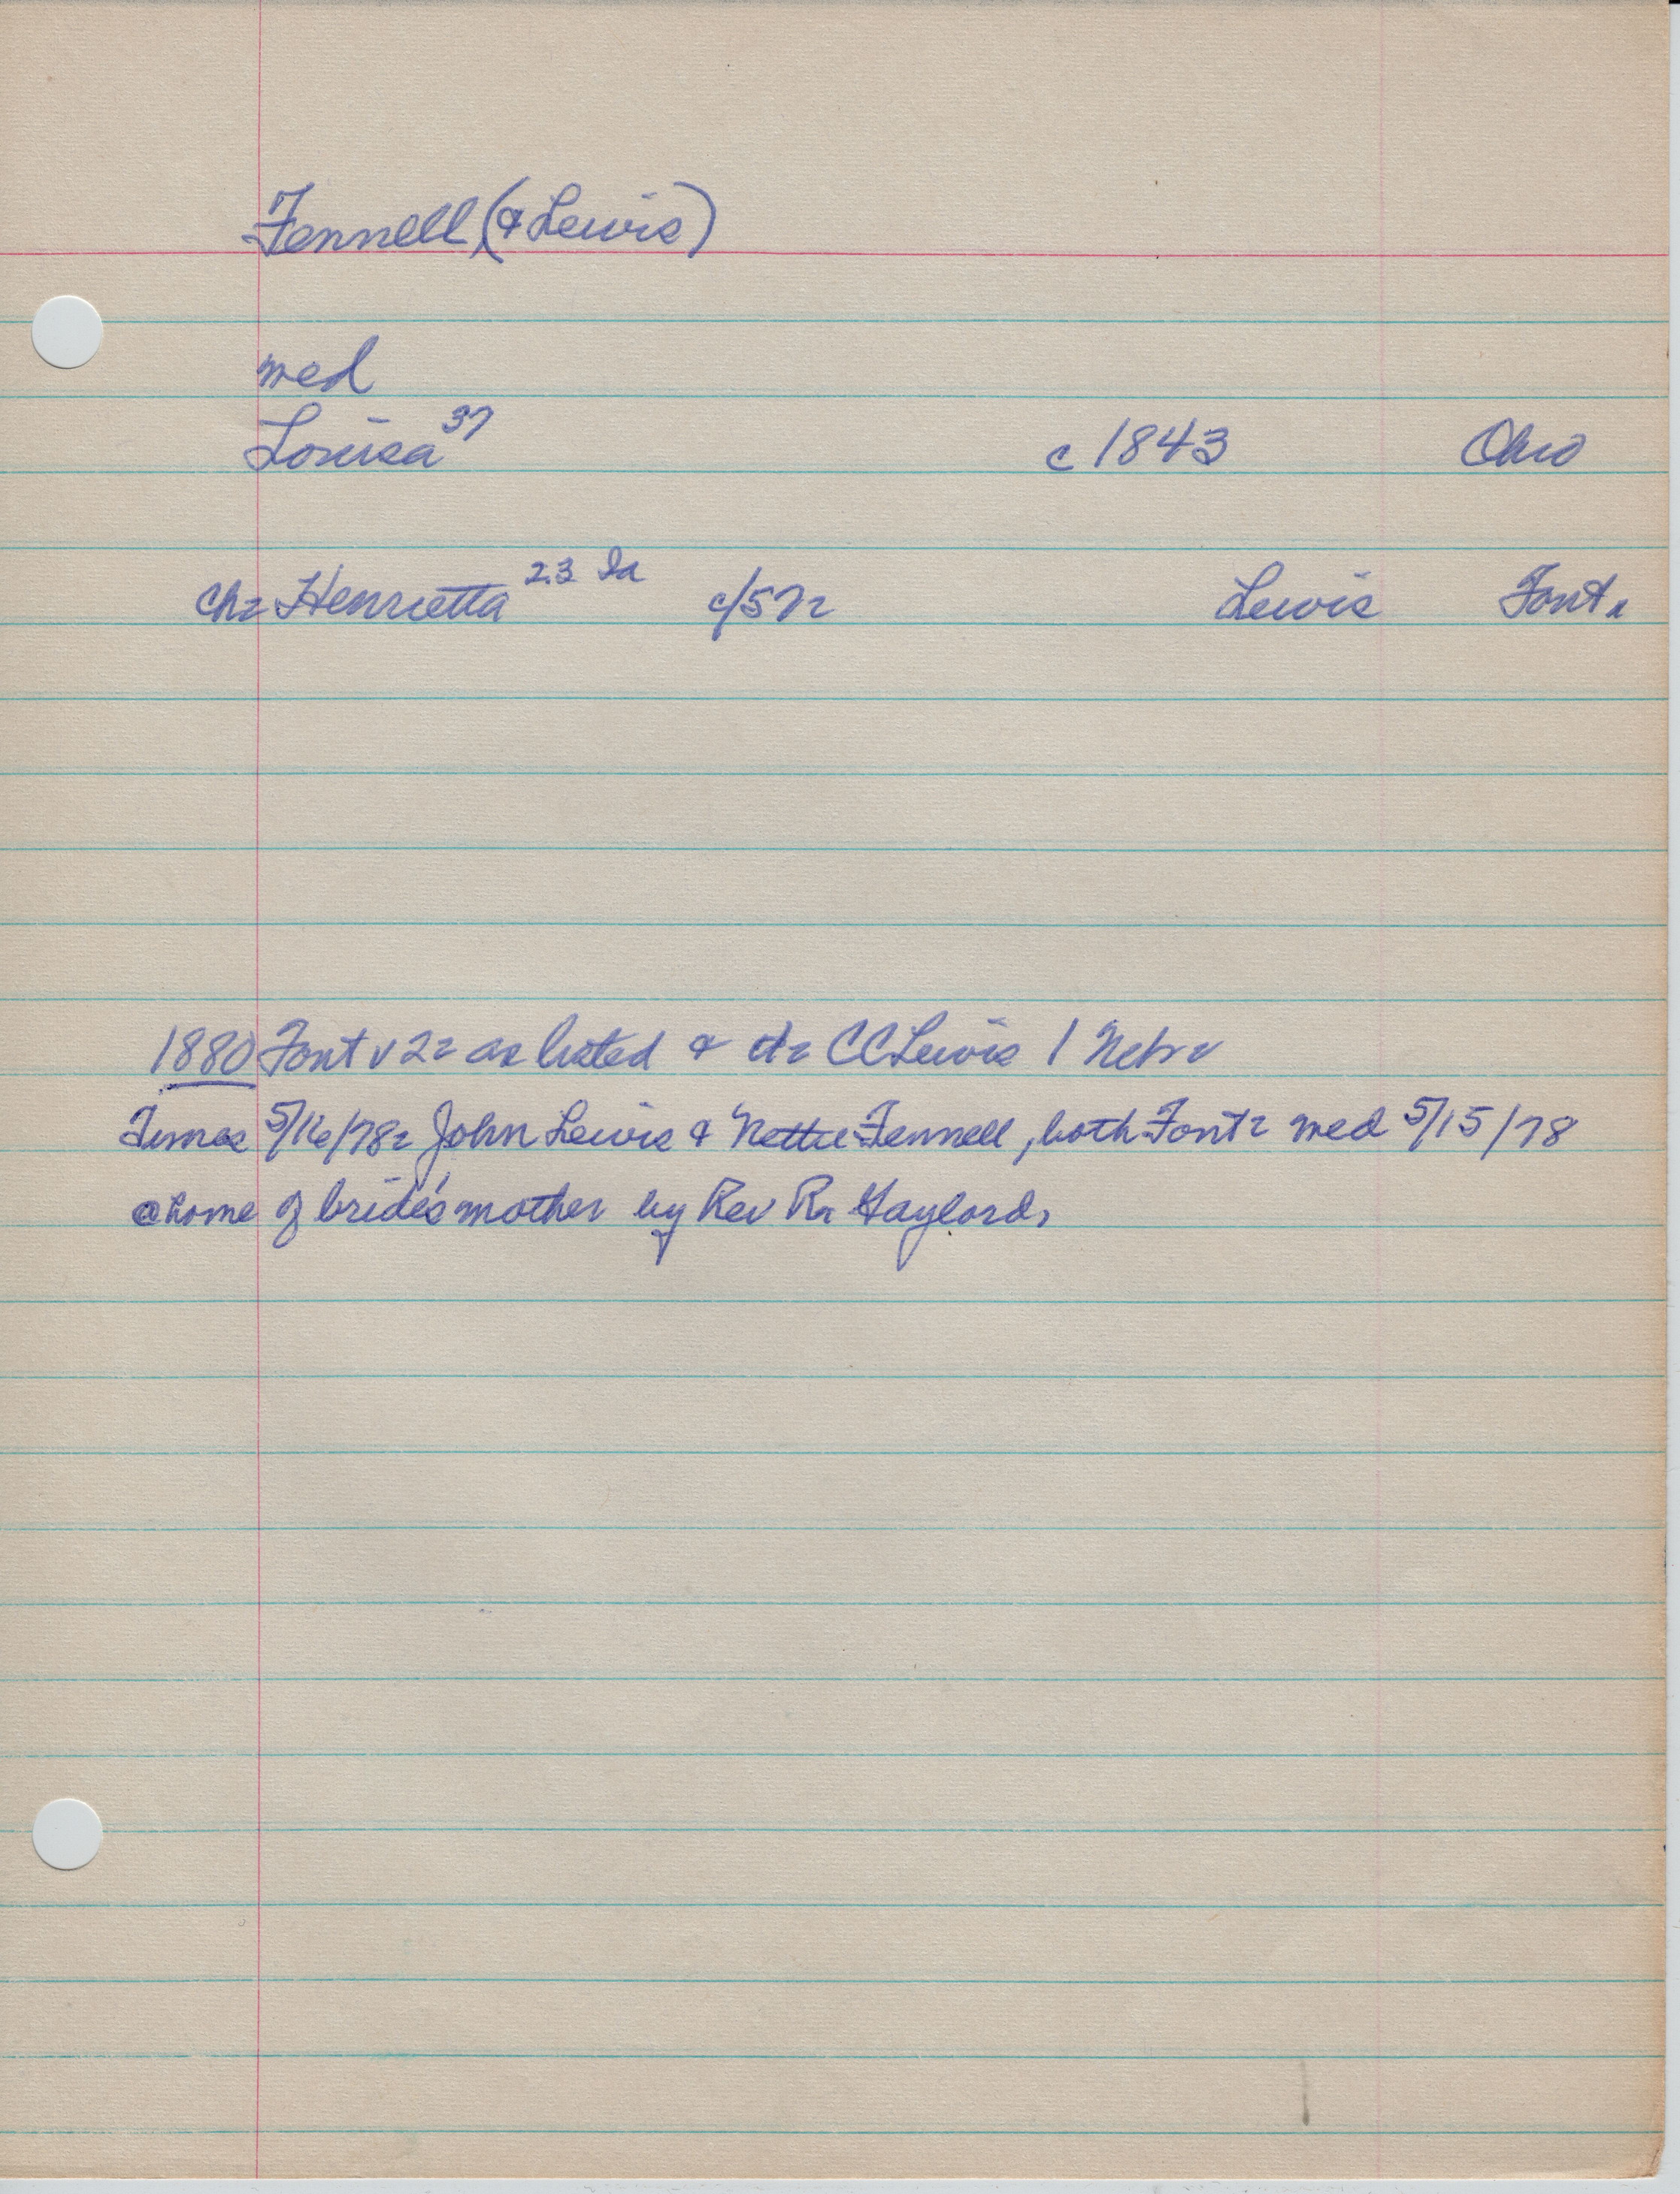 Fennell (& Lewis)
med
Louisa 37 c 1843 Ohio
Ch: Henrietta 23 Ia c/57: Lewis Font.
1880 Font. 2: as listed & ch: CCLewis 1 Nebr
Times 5/16/78: John Lewis & Nettie Fennell, both Font: med 5/15/78
@ home of bride's mother by Rev R. Gaylord.